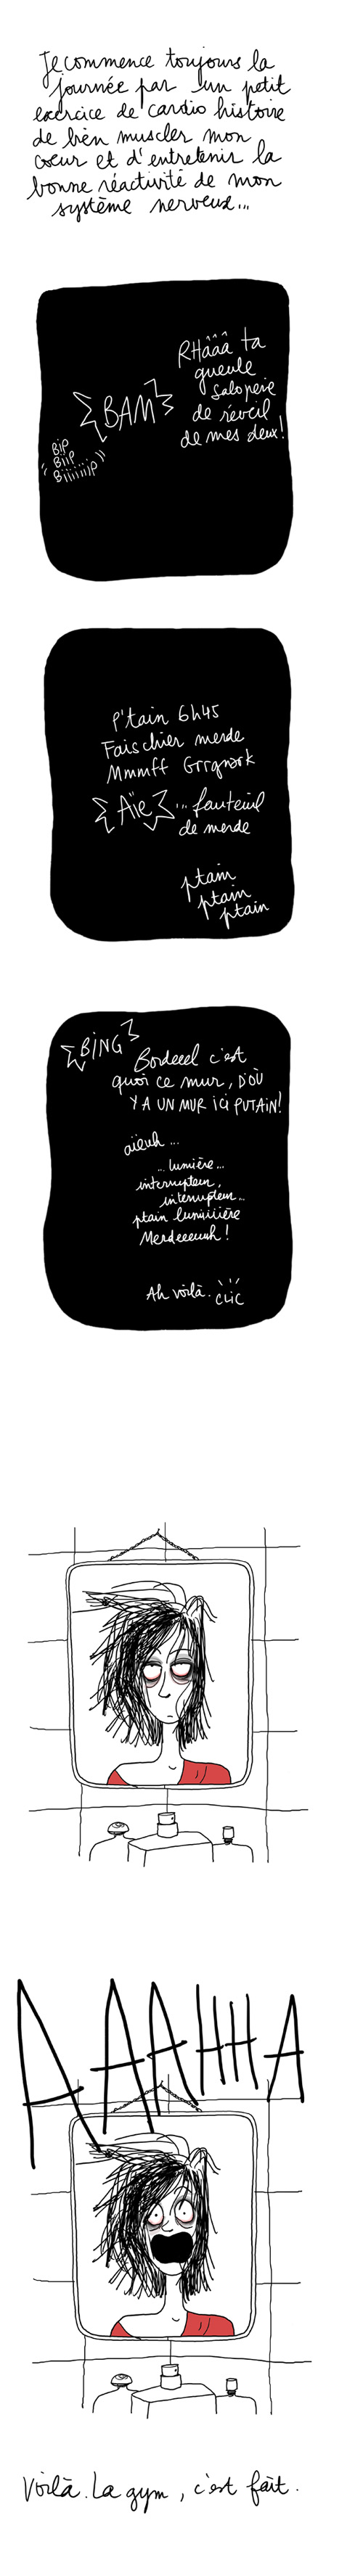 Je commence toujours la
journée par un petit
exercice de cardio histoire
de bien muscler mon
coeur et d'entretenir la
bonne réactivité de mon
système nerveux...
Bip
Biip
Biiiiiip
BAM
RHâââ ta
gueule
saloperie
de réveil
de mes deux!
P'tain 6h45
Fais chier merde
Mmmff Grrgnark
Aïe ... fauteuil
de merde
ptain
ptain
ptain
BING
Bordeeel c'est
quoi ce mur, D'OÙ
Y A UN MUR ICI PUTAIN!
aïeuh ...
... lumière...
interrupteur,
interrupteur...
ptain lumiiiière
Merdeeeuuh!
Ah voilà. CLIC
AAAHHA
Voilà. La gym, c'est fait.